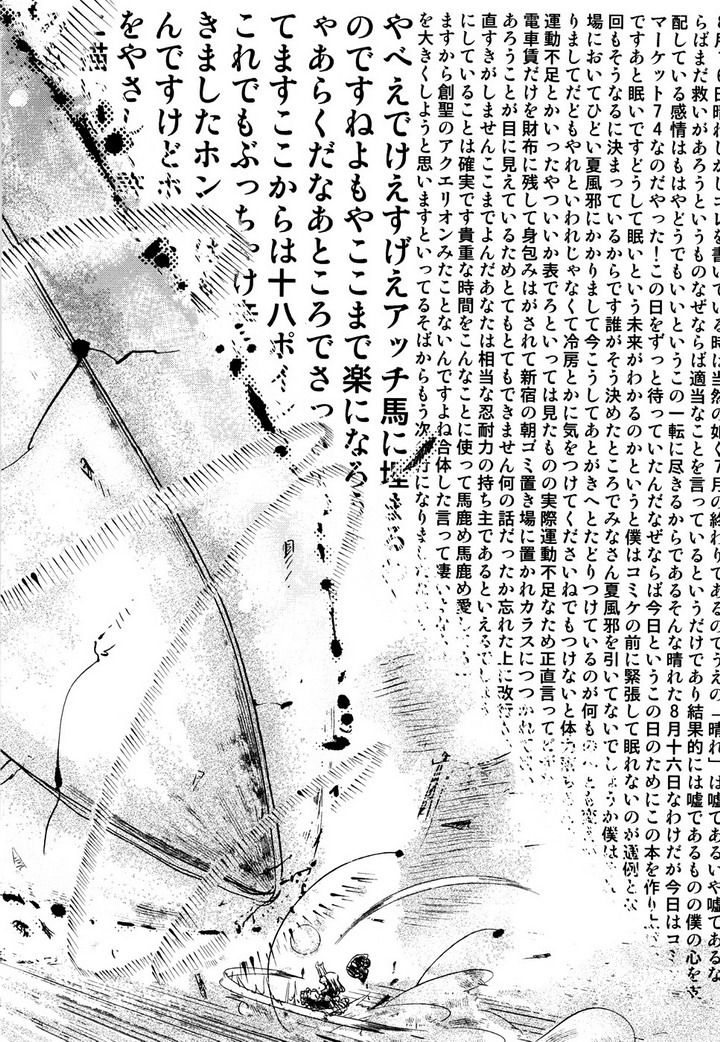 らばまだ救いがあろうというものなぜならば適当なことを言っているというだけであり結果的には嘘であるものの僕の心をさ
配している感情はもはやどうでもいいというこの一転に尽きるからであるそんな晴れた8月十六日なわけだが今日はコミ
マーケット74なのだやった!この日をずっと待っていたんだなぜならば今日というこの日のためにこの本を作り上
ですあと眠いですどうして眠いという未来がわかるのかというと僕はコミケの前に緊張して眠れないのが通例とな
回もそうなるに決まっているからです誰がそう決めたところでみなさん夏風邪を引いてないでしょうか僕は
場においてひどい夏風邪にかかりまして今こうしてあとがきへとたどりつけているのが何も
りましてだどもやれといわれじゃなくて冷房とかに気をつけてくださいねでもつけないと体
運動不足とかいったやついいか表でろといっては見たものの実際運動不足なため正直言って
電車賃だけを財布に残して身包みはがされて新宿の朝ゴミ置き場に置かれカラスにつつかれて
あろうことが目に見えているためとてもとてもできません何の話だったか忘れた上に改行
直すきがしませんここまでよんだあなたは相当な忍耐力の持ち主であるといえるでし
にしていることは確実です貴重な時間をこんなことに使って馬鹿め馬鹿め愛して
ますから創聖のアクエリオンみたことないんですよね合体した言って凄い
を大きくしようと思いますといってるそばからもう次
行になりました
やべえでけえすげえアッチ馬に埋まる
のですねよもやここまで楽になろう
ゃあらくだなあところでさっ
てますここからは十八ポ
これでもぶっちゃけ
きましたホン
んですけどホ
をやさし